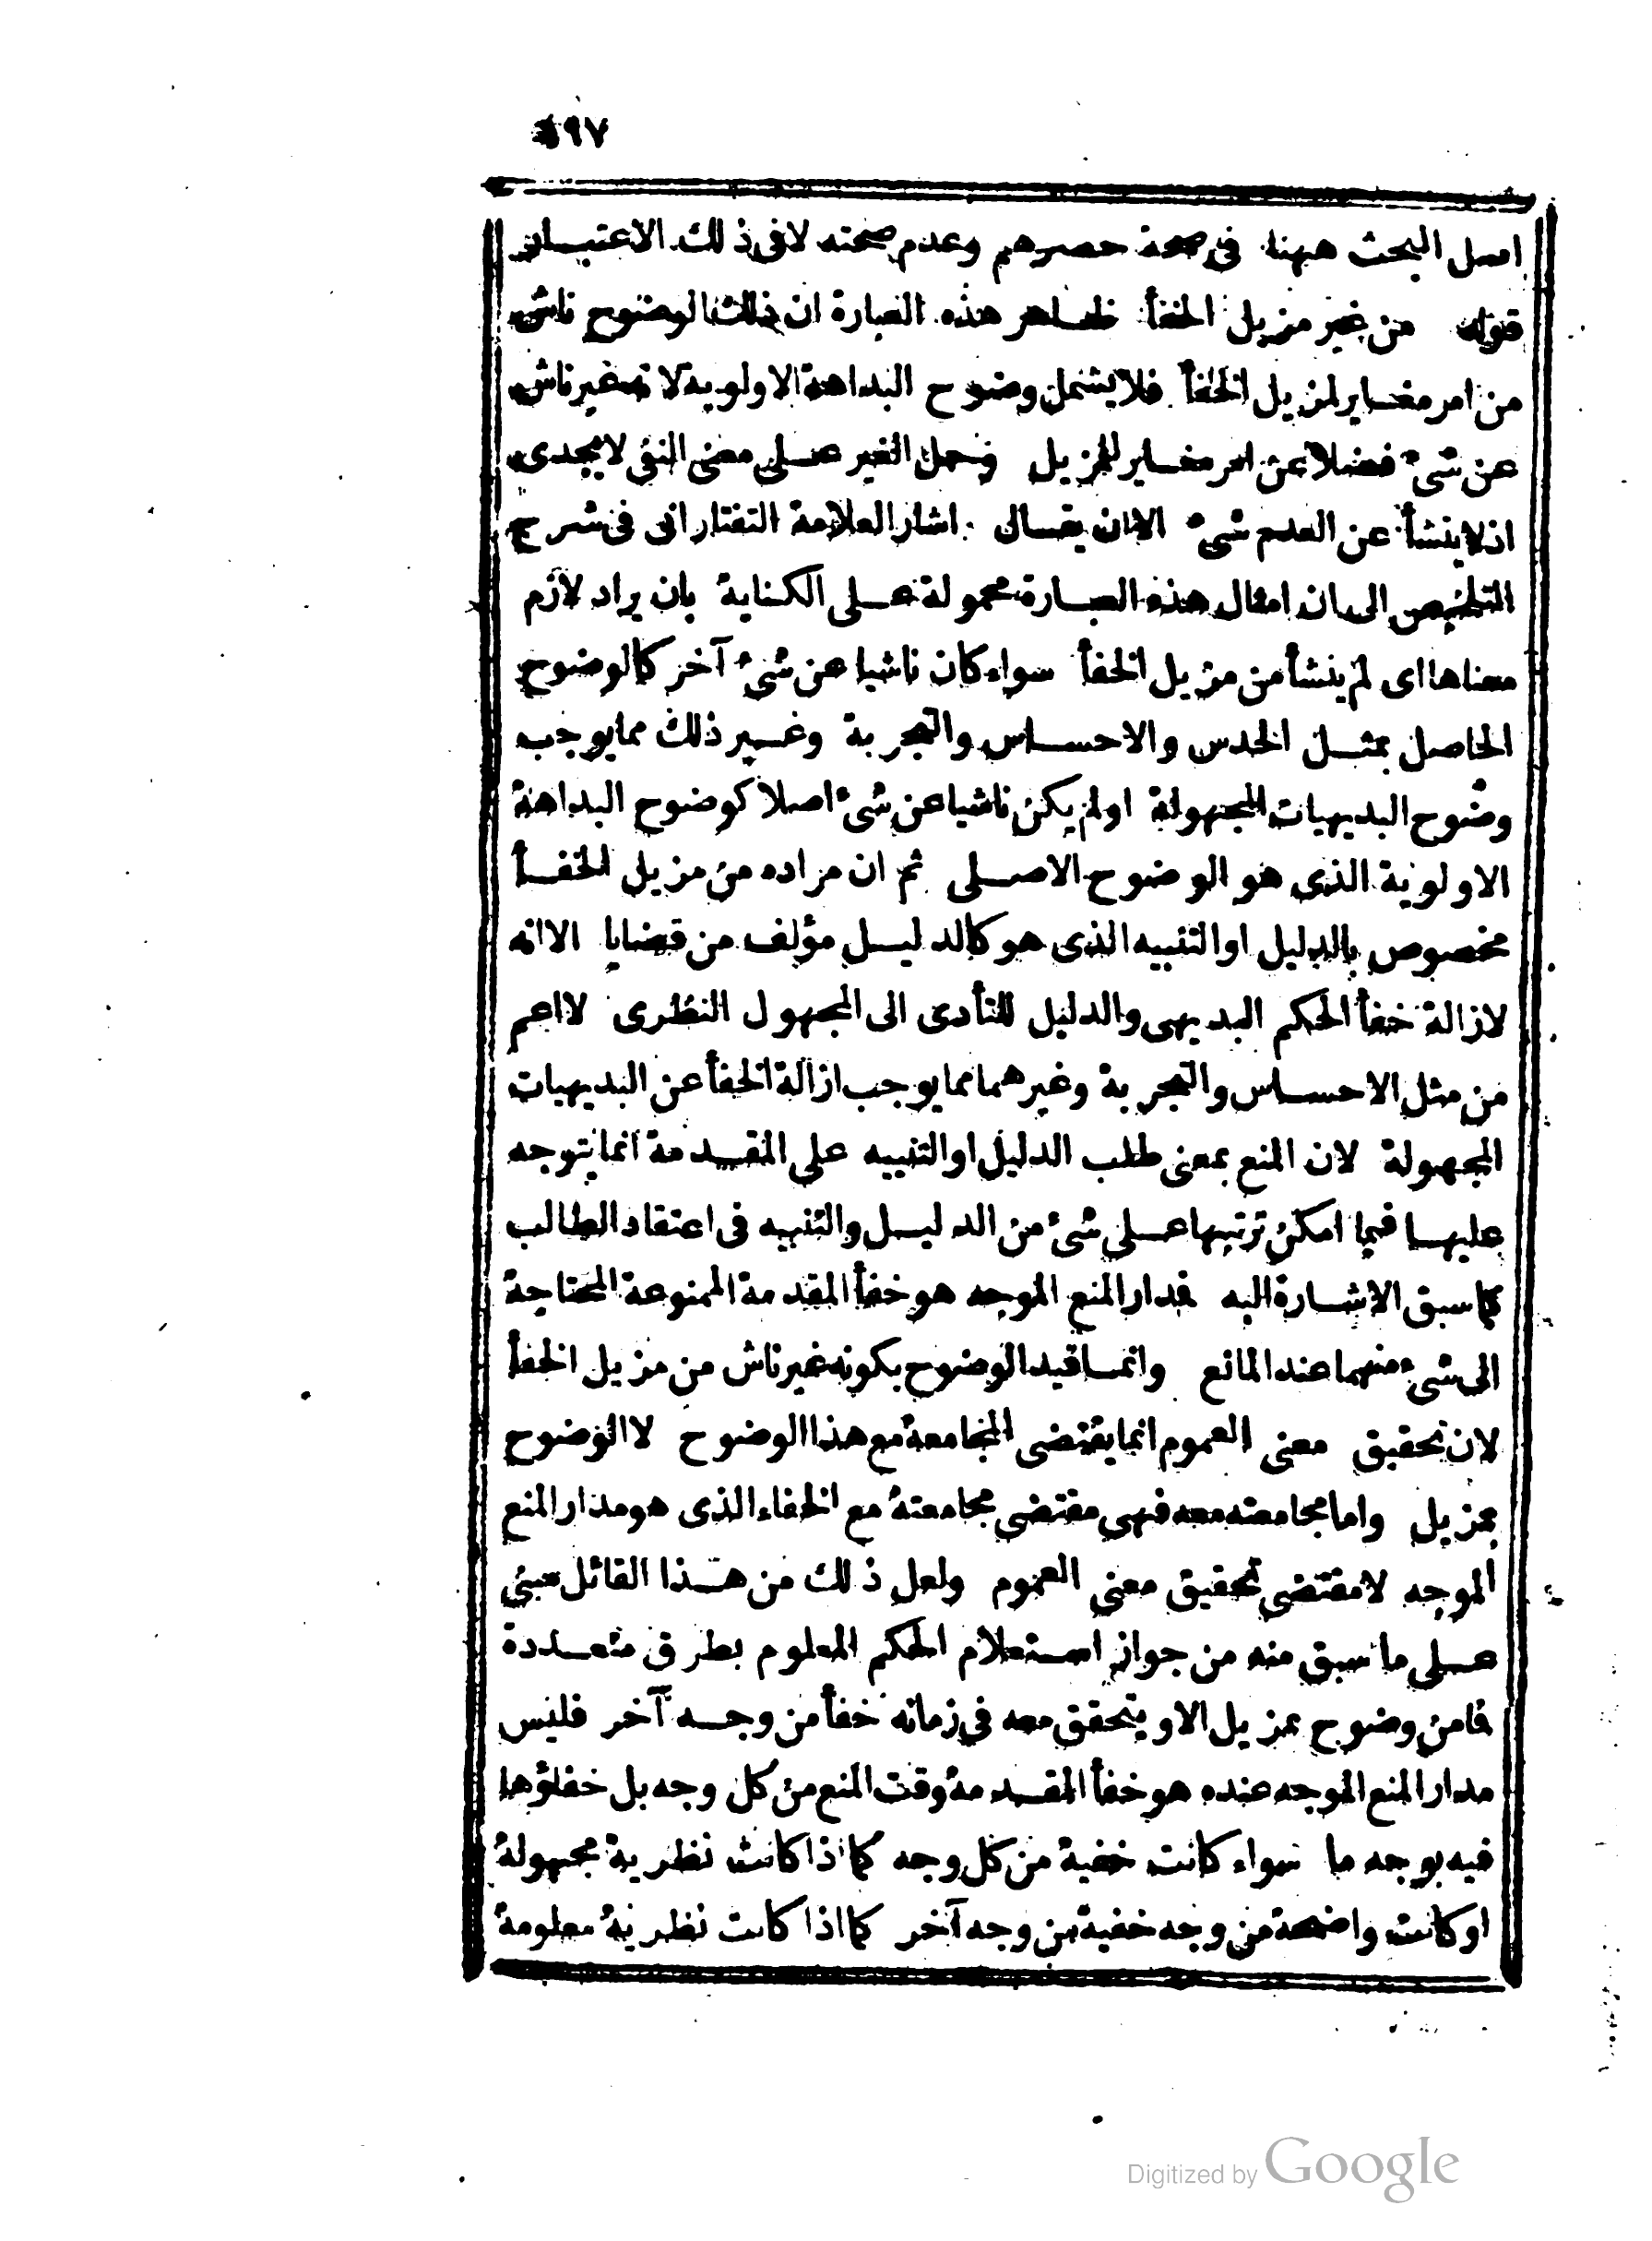 ١٩٧
اصل البحث ههنا فى صحة حصرهم وعدم صحته لا فى ذلك الاعتبار
قوله من غير مزيل الخفأ ظاهر هذه العبارة ان ذلك الوضوح ناش
من امر مغاير لمزيل الخفأ فلا يشمل وضوح البداهة الاولوية لانه غير ناش
عن شئ فضلا عن امر مغاير للمزيل وحمل الغير على معنى النفى لا يجدى
اذ لا ينشأ عن العدم شئ الا ان يقال اشار العلامة التفتازانى فى شرح
التلخيص الى ان امثال هذه العبارة محمولة على الكناية بان يراد لازم
معناها اى لم ينشأ من مزيل الخفأ سواء كان ناشيا عن شئ آخر كالوضوح
الحاصل بمثل الحدس والاحساس والتجربة وغير ذلك مما يوجب
وضوح البديهيات المجهولة او لم يكن ناشيا عن شئ اصلا كوضوح البداهة
الاولوية الذى هو الوضوح الاصلى ثم ان مراده من مزيل الخفأ
مخصوص بالدليل او التنبيه الذى هو كالدليل مؤلف من قضايا الا انه
لازالة خفأ الحكم البديهى والدليل للتأدى الى المجهول النظرى لا اعم
من مثل الاحساس والتجربة وغيرهما مما يوجب ازالة الخفأ عن البديهيات
المجهولة لان المنع بمعنى طلب الدليل او التنبيه على المقدمة انما يتوجه
عليها فيما امكن ترتبها على شئ من الدليل والتنبيه فى اعتقاد الطالب
كما سبق الاشارة اليه فدار المنع الموجه هو خفأ المقدمة الممنوعة المحتاجة
الى شئ منهما عند المانع وانما قيد الوضوح بكونه غير ناش من مزيل الخفأ
لان تحقيق معنى العموم انما يقتضى المجامعة مع هذا الوضوح لا الوضوح
بمزيل واما مجامعته معه فهى مقتضى مجامعته مع الخفاء الذى هو مدار المنع
الموجه لا مقتضى تحقيق معنى العموم ولعل ذلك من هذا القائل مبنى
على ما سبق منه من جواز استعلام الحكم المعلوم بطرق متعددة
فامن وضوح بمزيل الا ويتحقق معه فى زمانه خفأ من وجه آخر فليس
مدار المنع الموجه عنده هو خفأ المقدمة وقت المنع من كل وجه بل خفاؤها
فيه بوجه ما سواء كانت خفية من كل وجه كما اذا كانت نظرية مجهولة
او كانت واضحة من وجه خفية من وجه آخر كما اذا كانت نظرية معلومة
Digitized by Google